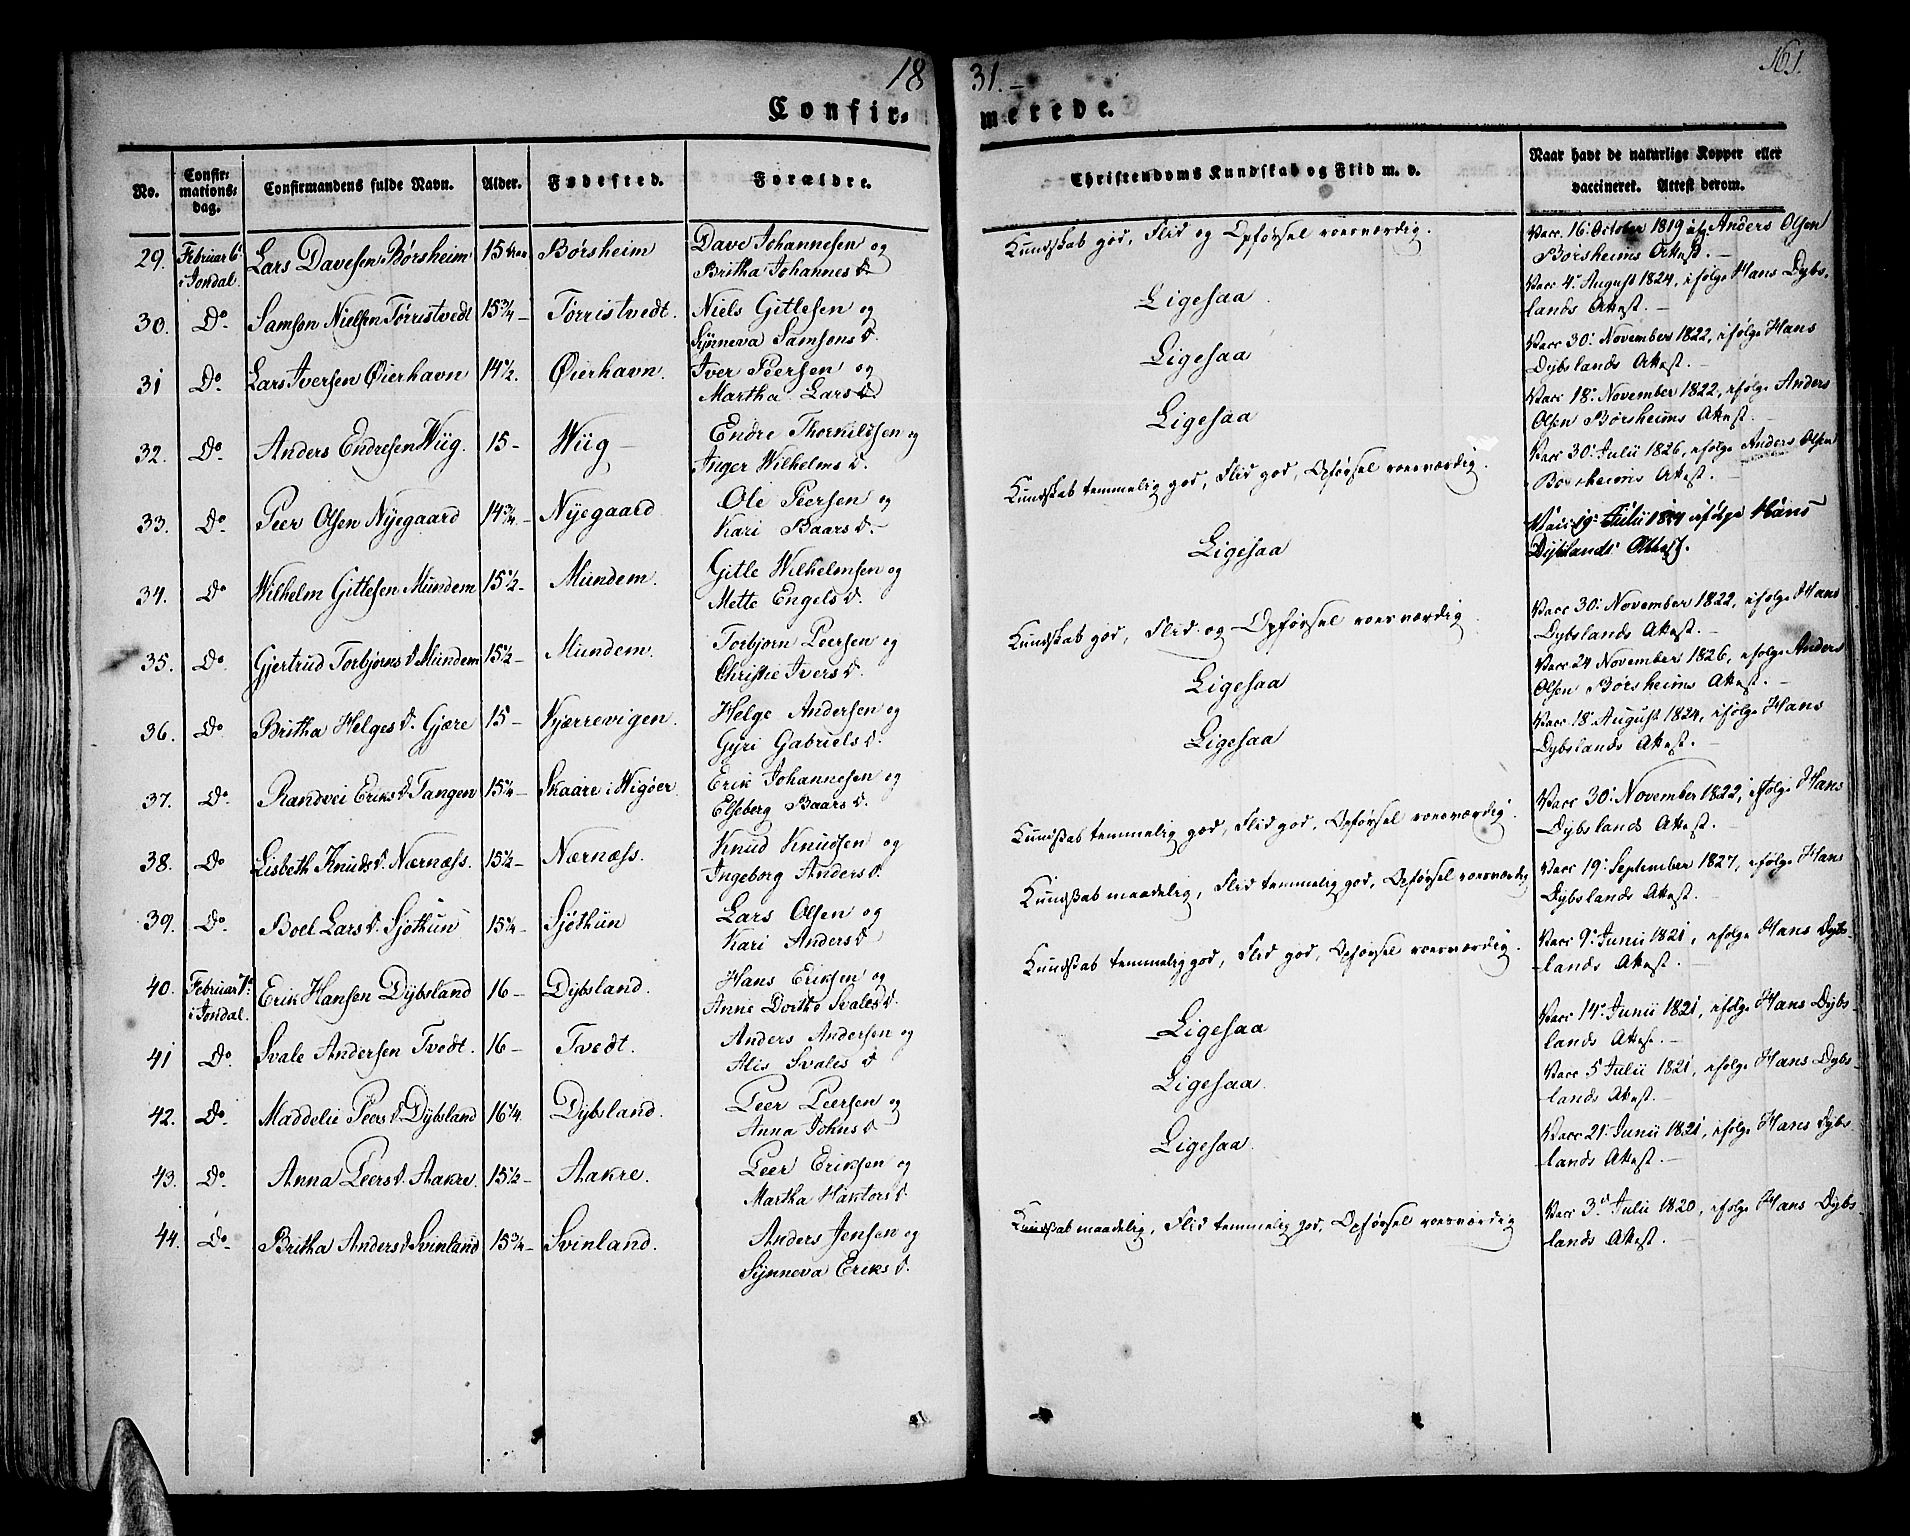 18 31. 161.
Confir- merede.
No. Confirmationsdag. Confirmandens fulde Navn. Alder. Fødested. Forældre. Christendoms Kundskab og Flid m. v. Naar havt de naturlige Kopper eller vaccineret. Attest derom.
29. Februar 6. i Jondal. Lars Davesen Børsheim 15 Børsheim Dave Johannesen og Britha Johannes d. Kundskab god, Flid og Opførsel roesværdig. Vacc. 16. October 1819 Anders Olsen Børsheims Attest.
30. Do Samson Nielsen Tørristvedt 15¾ Tørristvedt. Niels Gitlesen og Synneva Samsons d. Ligesaa Vacc 4. August 1824, ifølge Hans Dybslands Attest.
31 Do Lars Iversen Øierhavn 14½. Øierhavn. Iver Peersen og Martha Lars d. Ligesaa Vacc 30. November 1822, ifølge Hans Dybslands Attest.
32. Do Anders Endresen Wiig. 15 Wiig Endre Thorkildsen og Inger Wilhelms d. Ligesaa Vacc 18. November 1822, ifølge Anders Olsen Børsheims Attest.
33. Do Peer Olsen Nyegaard 14¾ Nyegaard Ole Peersen og Kari Baars d. Kundskab temmelig god, Flid god, Opførsel roesværdig. Vacc 30. Julii 1826, ifølge Anders Olsen Børsheims Attest.
34. Do Wilhelm Gitlesen Mundem 15½ Mundem. Gitle Wilhelmsen og Mette Engels d. Ligesaa Vacc 19. Julii ifølge Hans Dybslands Attest.
35. Do Gjertrud Torbjørns d. Mundem 15½ Mundem. Torbjørn Peersen og Christie Ivers d. Kundskab god, Flid og Opførsel roesværdig Vacc 30. November 1822, ifølge Hans Dybslands Attest.
36. Do Britha Helges d. Gjære 15 Kjærrevigen. Helge Andersen og Gyri Gabriels d. Ligesaa Vacc 24 November 1826, ifølge Anders Olsen Børsheims Attest.
37. Do Randvei Eriks d. Tangen 15¼ Skaare i Wigøer. Erik Johannesen og Elseberg Baars d. Ligesaa Vacc 18. August 1824, ifølge Hans Dybslands Attest.
38. Do Lisbeth Knuds d. Nærnæss. 15½ Nærnæss. Knud Knudsen og Ingeborg Anders d. Kundskab temmelig god, Flid god, Opførsel roesværdig. Vacc 30. November 1822, ifølge Hans Dybslands Attest.
39. Do Boel Lars d. Sjøthun 15¼ Sjøthun Lars Olsen og Kari Anders d. Kundskab maadelig, Flid temmelig god, Opførsel roesværdig Vacc 19. September 1827, ifølge Hans Dybslands Attest.
40. Februar i Jondal. Erik Hansen Dybsland 16 Dybsland. Hans Eriksen og Anne Dorthe Svales d. Kundskab temmelig god, Flid god, Opførsel roesværdig. Vacc 9. Junii 1821, ifølge Hans Dybslands Attest.
41 Do Svale Andersen Tvedt. 16 Tvedt. Anders Andersen og Alis Svales d Ligesaa Vacc 14. Junii 1821, ifølge Hans Dybslands Attest.
42. Do Maddelie Peers d. Dybsland 16¼ Dybsland. Peer Peersen og Anna Johns d Ligesaa. Vacc 5 Julii 1821, ifølge Hans Dybslands Attest.
43. Do Anna Peers d. Aakre. 15½ Aakre. Peer Eriksen og Martha Haktors d. Ligesaa. Vacc 21. Junii 1821, ifølge Hans Dybslands Attest.
44. Do Britha Anders d Svinland 15¾ Svinland. Anders Jensen og Synneva Eriks d. Kundskab maadelig, Flid temmelig god, Opførsel roesværdig Vacc 3. Julii 1820, ifølge Hans Dybslands Attest.